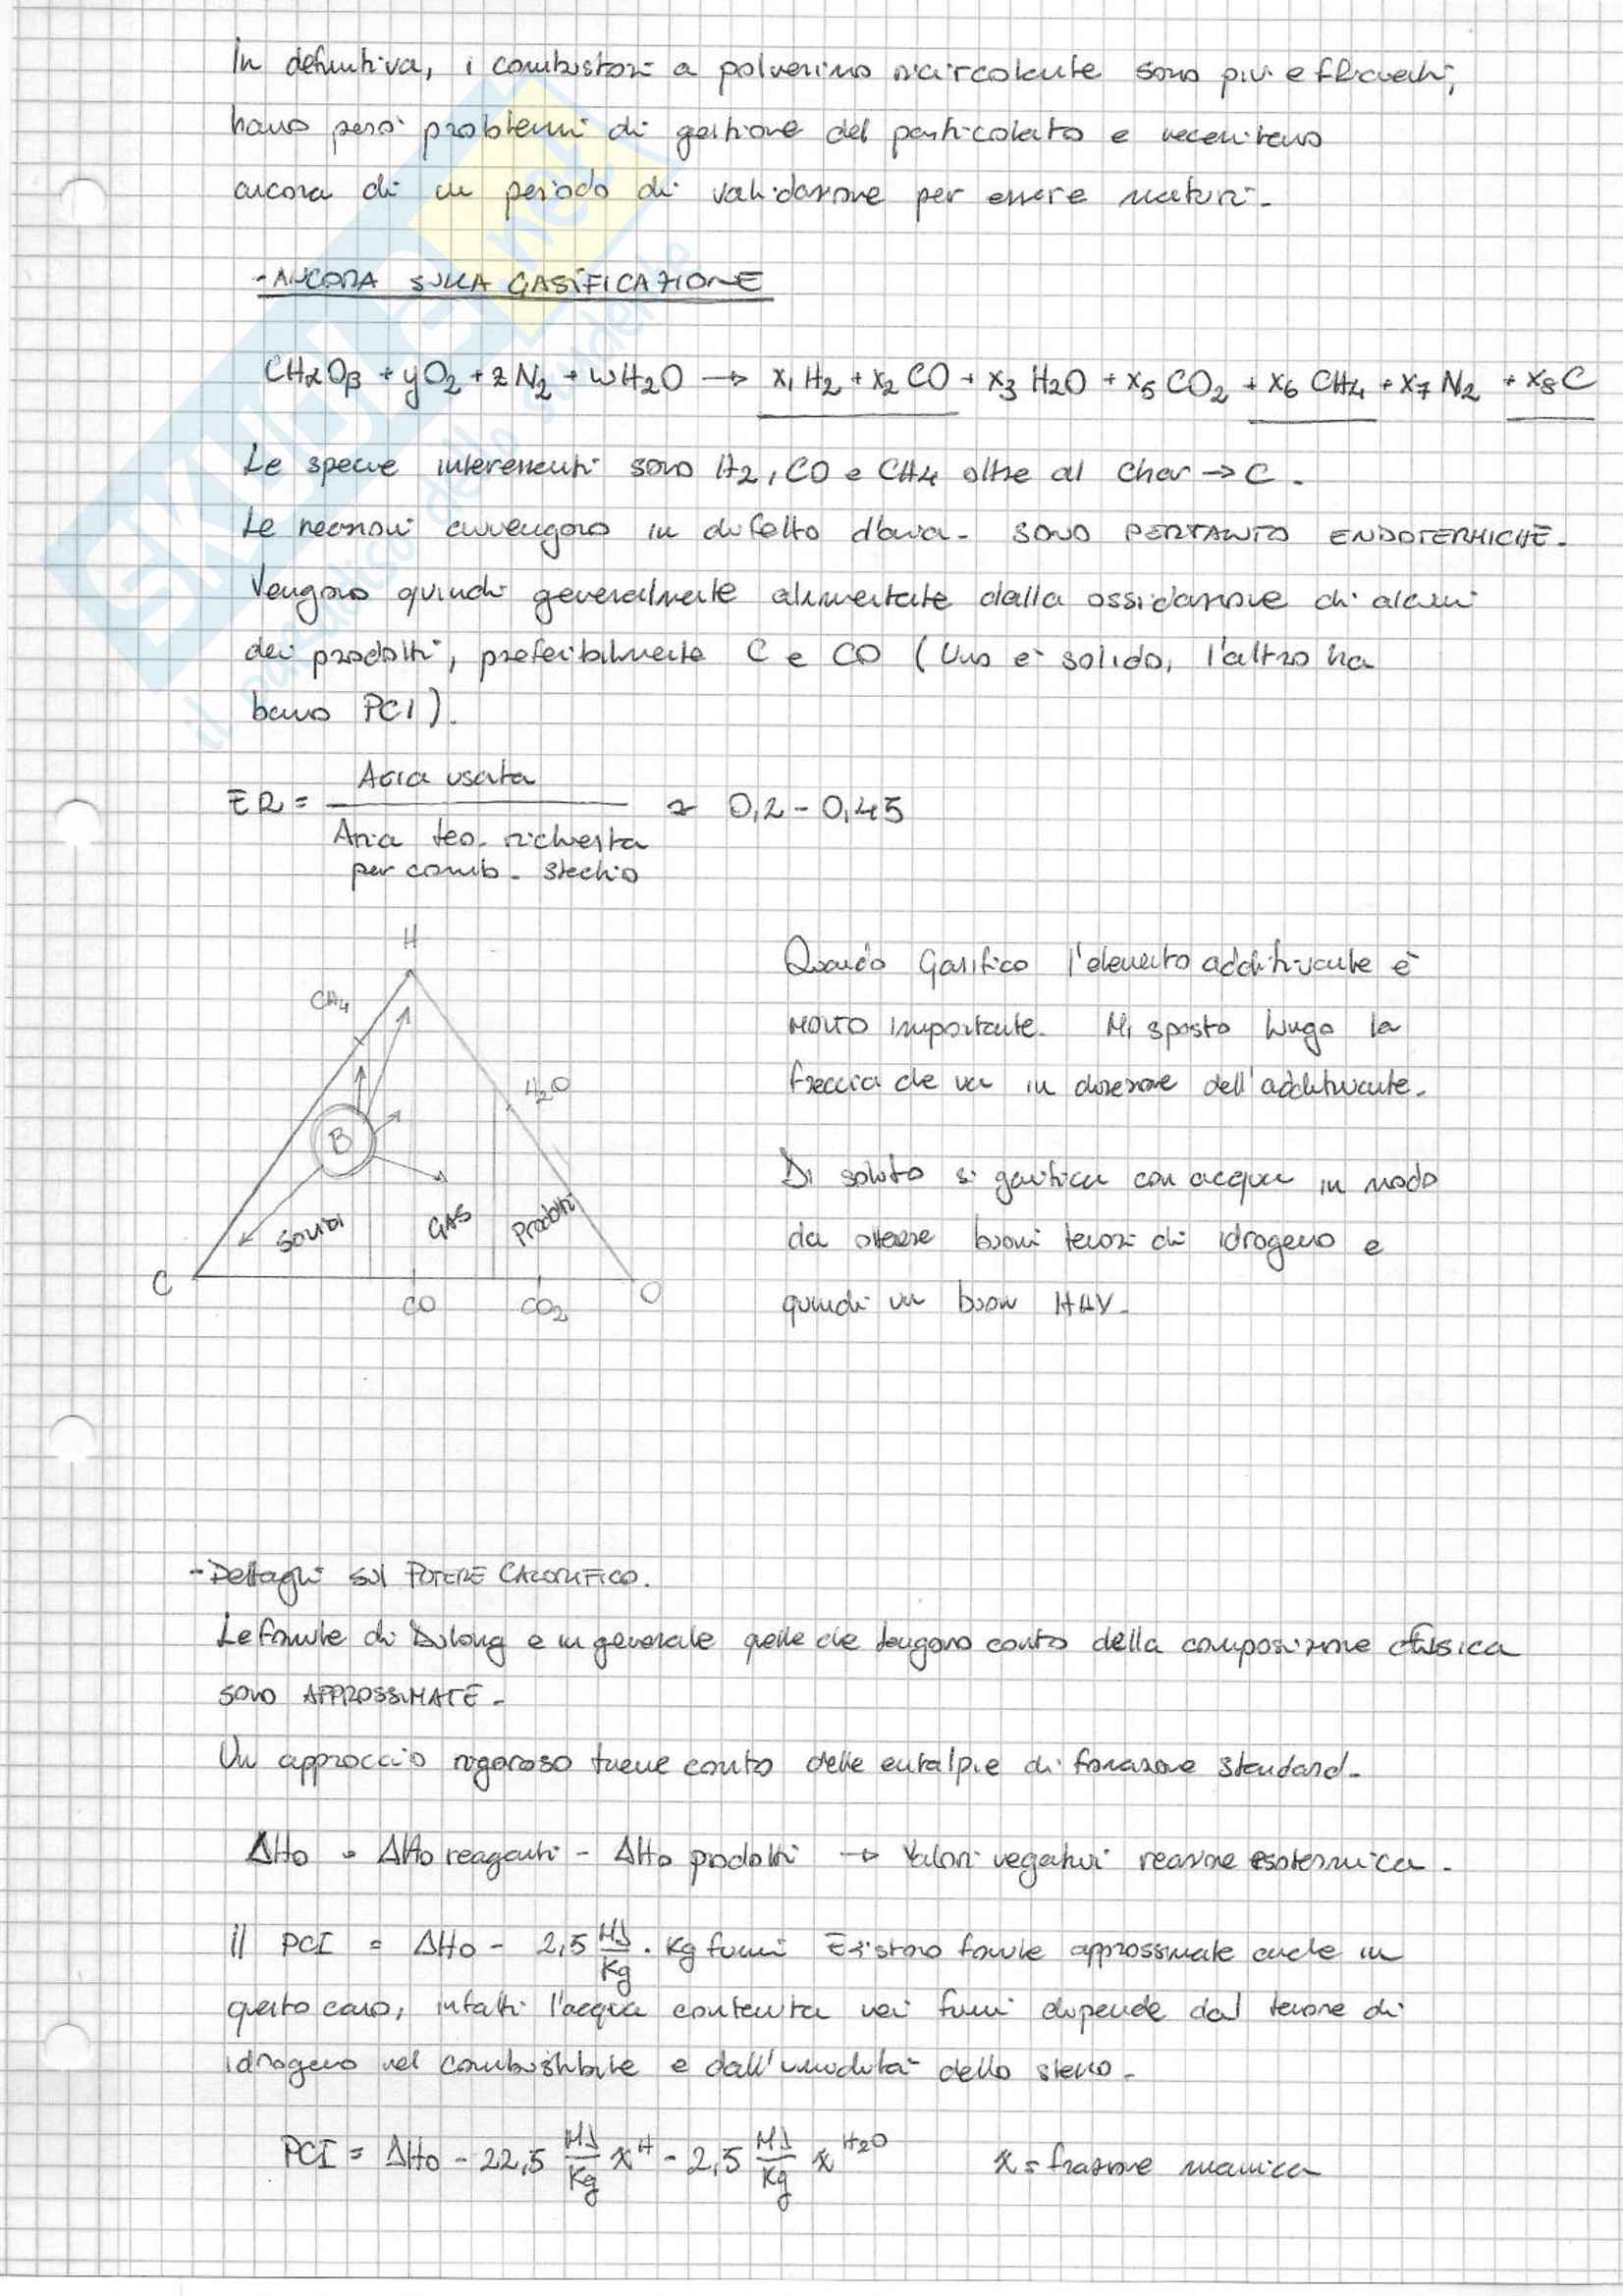 In definitiva, i combustori a polverino ricircolante sono più efficienti,
hanno però problemi di gestione del particolato e necessitano
ancora di un periodo di validazione per essere maturi.
- ANCORA SULLA GASIFICAZIONE
CHαOβ + yO2 + zN2 + wH2O → x1H2 + x2CO + x3H2O + x5CO2 + x6CH4 + x7N2 + x8C
Le specie interessenti sono H2, CO e CH4 oltre al char → C.
Le reazioni avvengono in difetto d'aria. SONO PERTANTO ENDOTERMICHE.
Vengono quindi generalmente alimentate dalla ossidazione di alcuni
dei prodotti, preferibilmente C e CO (Uno è solido, l'altro ha
basso PCI).
ER = Aria usata / Aria teo. richiesta per comb. stechio ≈ 0,2 - 0,45
H
CH4
H2O
B
SOLIDI
GAS
Prodotti
C
CO
CO2
O
Quando Gasifico l'elemento additivante è
MOLTO importante. Mi sposto lungo la
freccia che va in direzione dell'additivante.
Di solito si gasifica con acqua in modo
da ottenere buoni tenori di idrogeno e
quindi un buon HHV.
- Dettagli sul POTERE CALORIFICO.
Le formule di Dulong e in generale quelle che tengono conto della composizione chisica
sono APPROSSIMATE.
Un approccio rigoroso tiene conto delle entalpie di formazione standard.
ΔH0 = ΔH0 reagenti - ΔH0 prodotti → Valori negativi reazione esotermica.
Il PCI = ΔH0 - 2,5 MJ/Kg · Kg fumi Esistono formule approssimate anche in
questo caso, infatti l'acqua contenuta nei fumi dipende dal tenore di
idrogeno nel combustibile e dall'umidità dello stesso.
PCI = ΔH0 - 22,5 MJ/Kg x^H - 2,5 MJ/Kg x^H2O x = frazione massica
SKUOLA.net
il paradiso dello studente